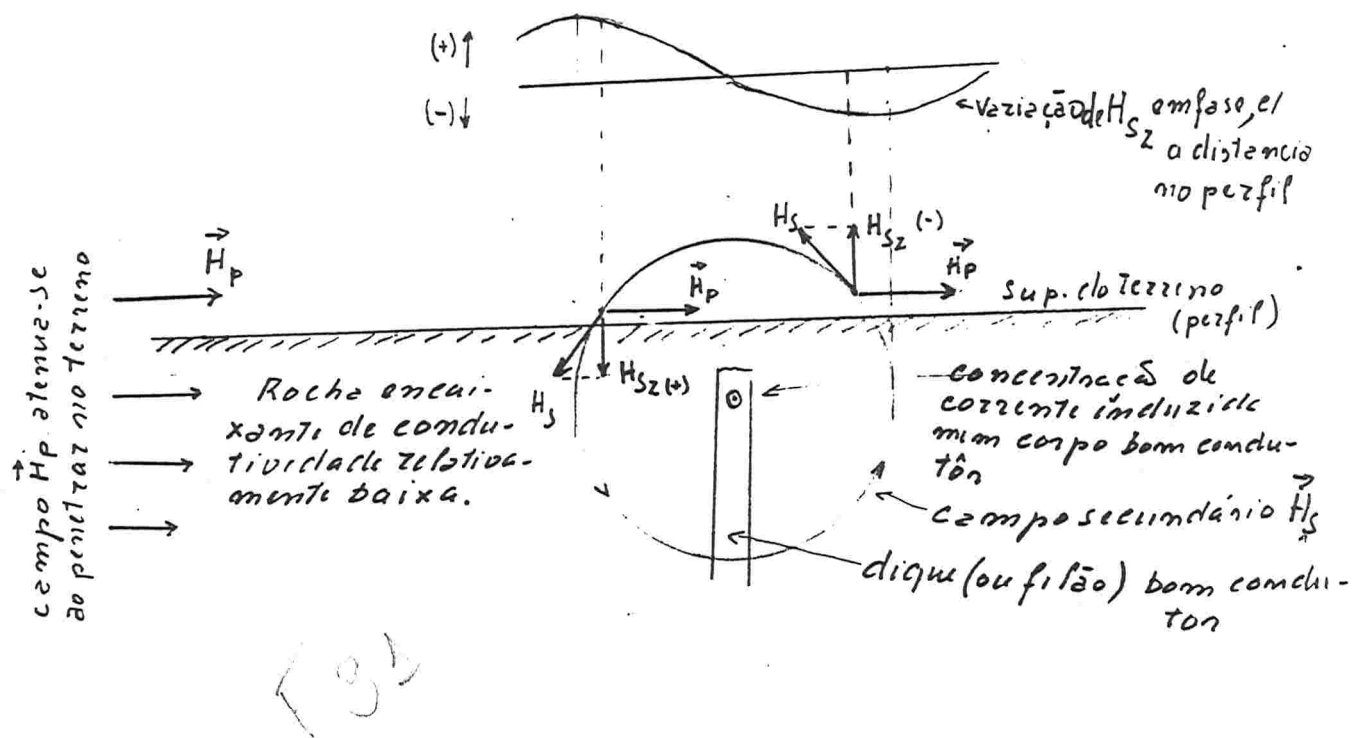 (+)↑
(-)↓
←variação de H_SZ em fase, c/
a distancia
no perfil
H_S
H_SZ (-)
H_P
H_P
H_P
sup. do Terreno
(perfil)
campo H_P atenua-se
ao penetrar no terreno
Rocha encai-
xante de condu-
tividade relativa-
mente baixa.
H_S
H_SZ(+)
concentração de
corrente induzida
num corpo bom condu-
tôr
campo secundário H_S
dique (ou filão) bom condu-
tor